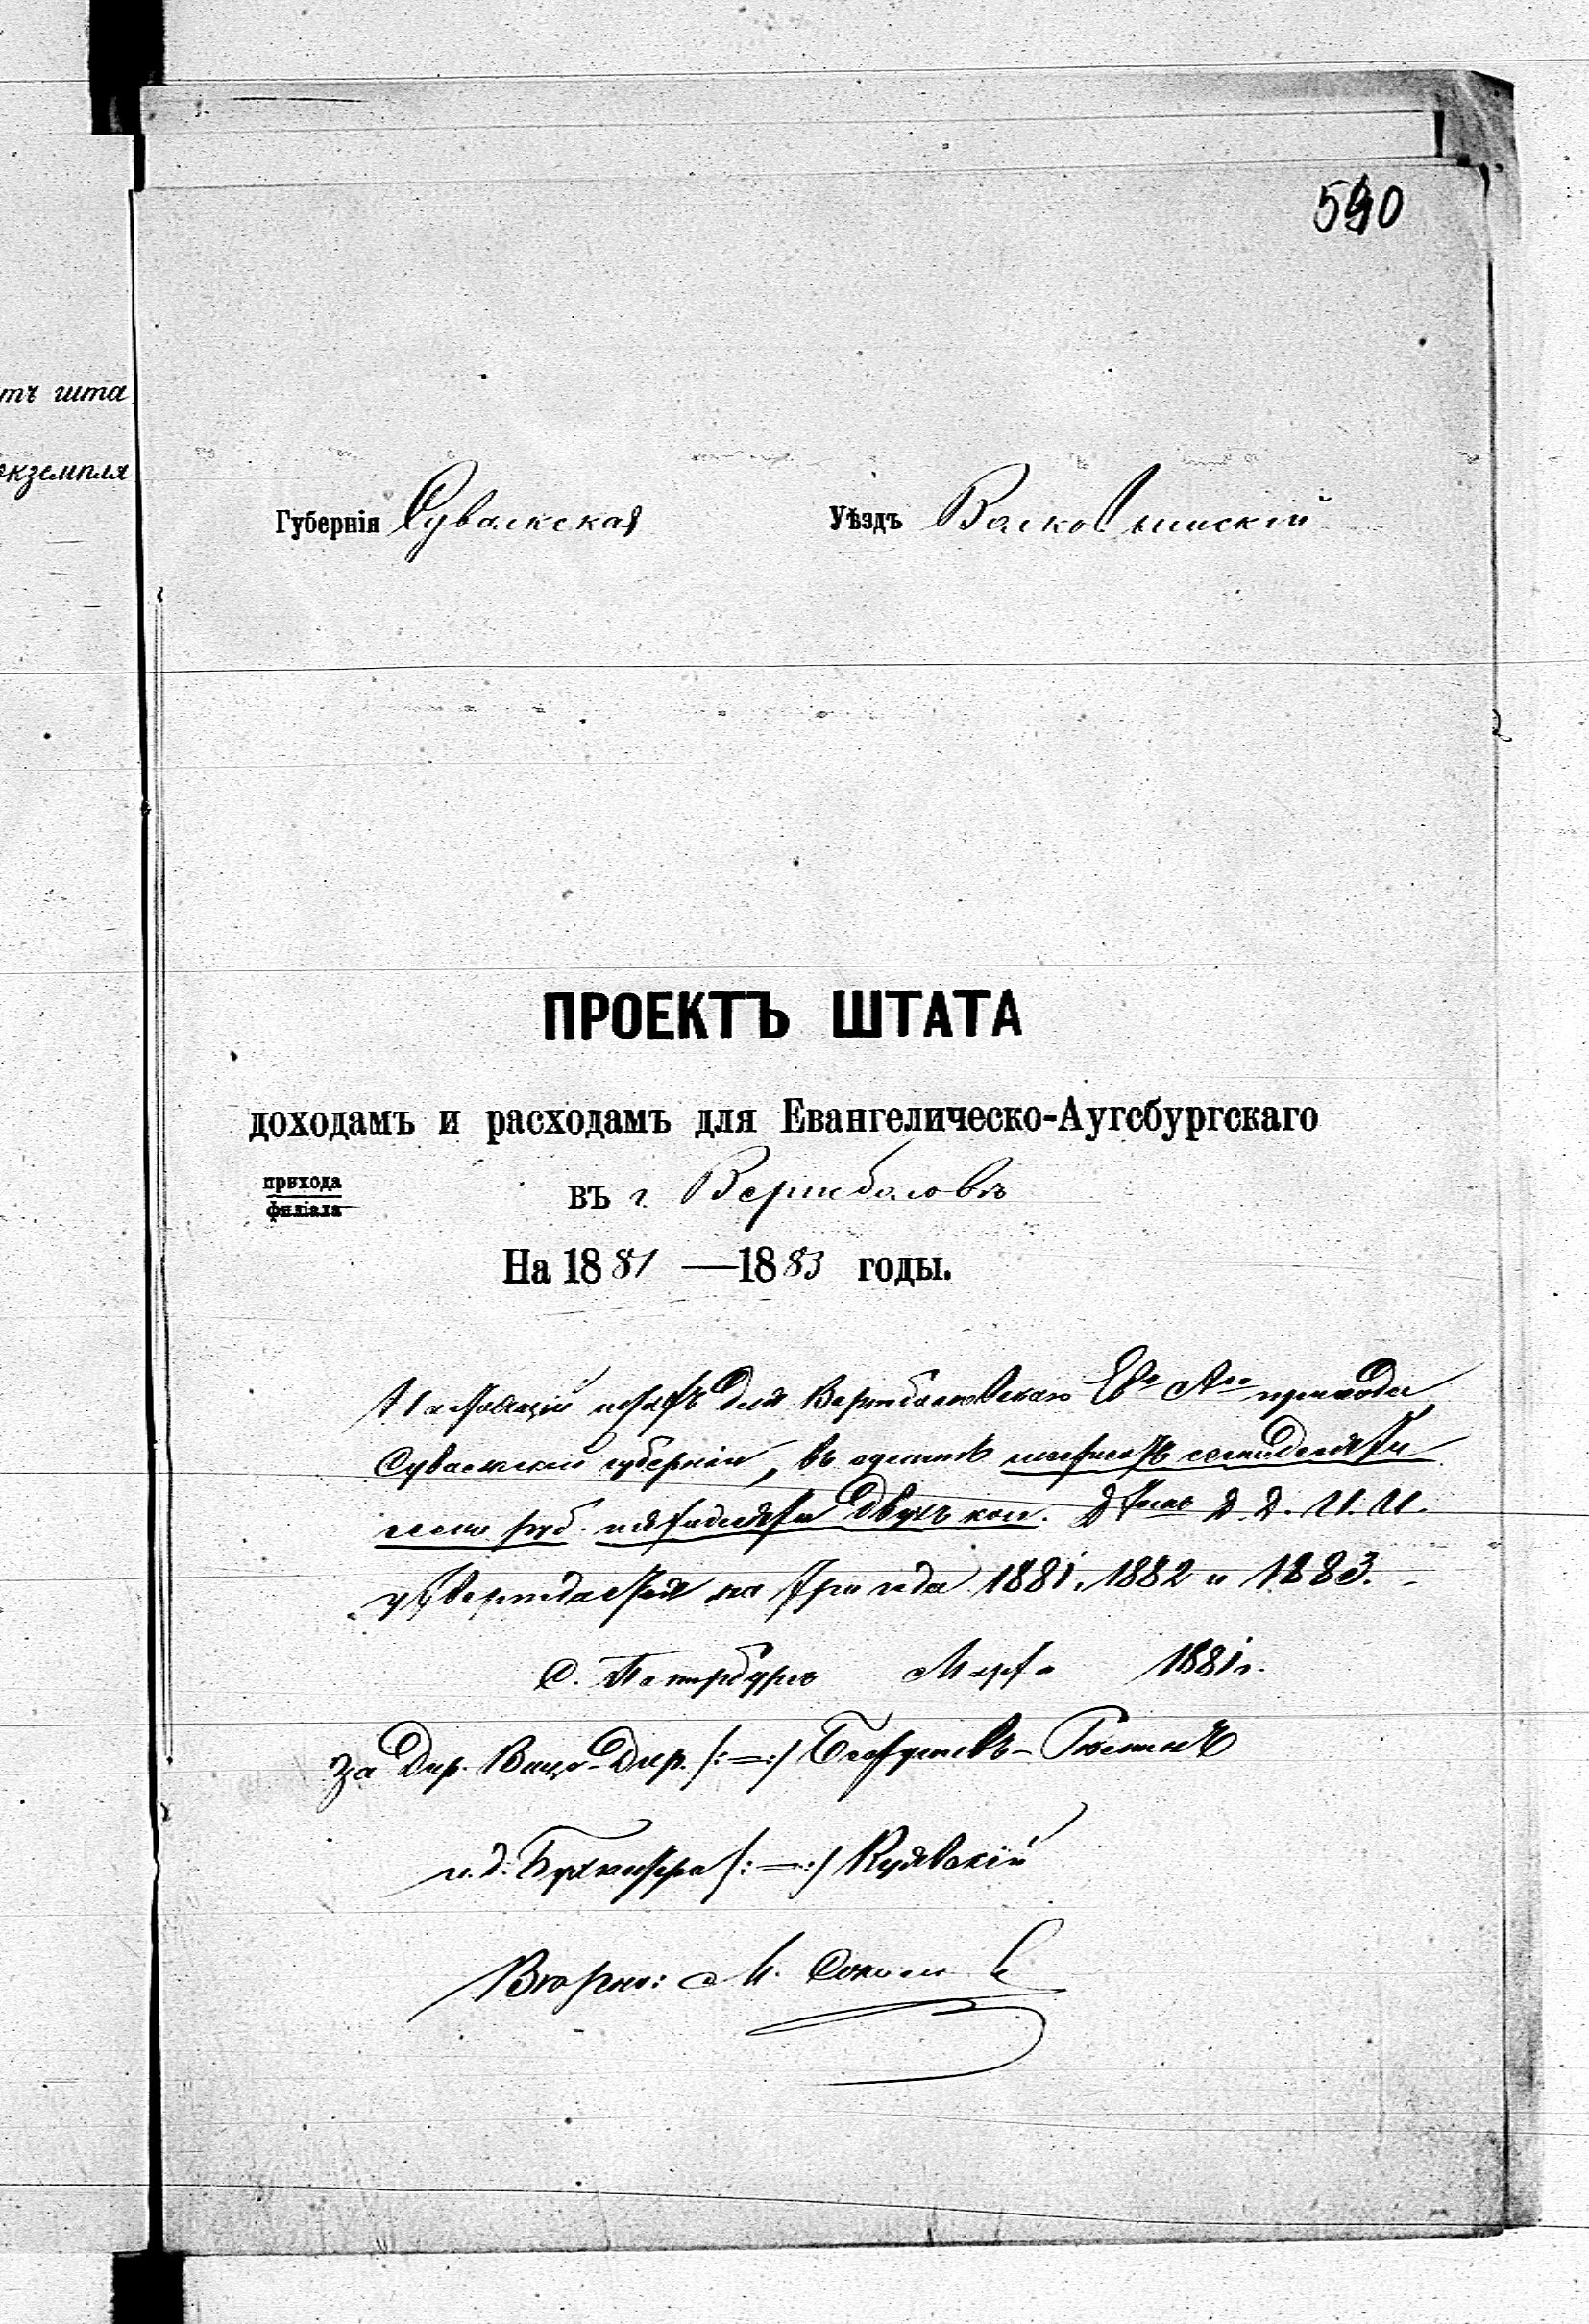 590
тъ шта
экземпля
Губернія Сувалкская Уѣздъ Волковышскій
ПРОЕКТЪ ШТАТА
доходамъ и расходамъ для Евангелическо-Аугсбургскаго
прихода
филіала
въ г. Вержболовѣ
На 1881 —1883 годы.
Настоящій штатъ для Вержболовскаго Ев. Ауг. прихода,
Сувалкской губерніи, въ суммѣ шестьсотъ семидесяти
семи руб. пятидесяти двухъ коп. Д. Д. И. И.
утверждается на три года 1881, 1882 и 1883.
С. Петербургъ Марта 1881 г.
За Дир. Вице-Дир. /:—:/
и. д. Бухгалтера /:—:/ Куявскій
Вѣрно: М.